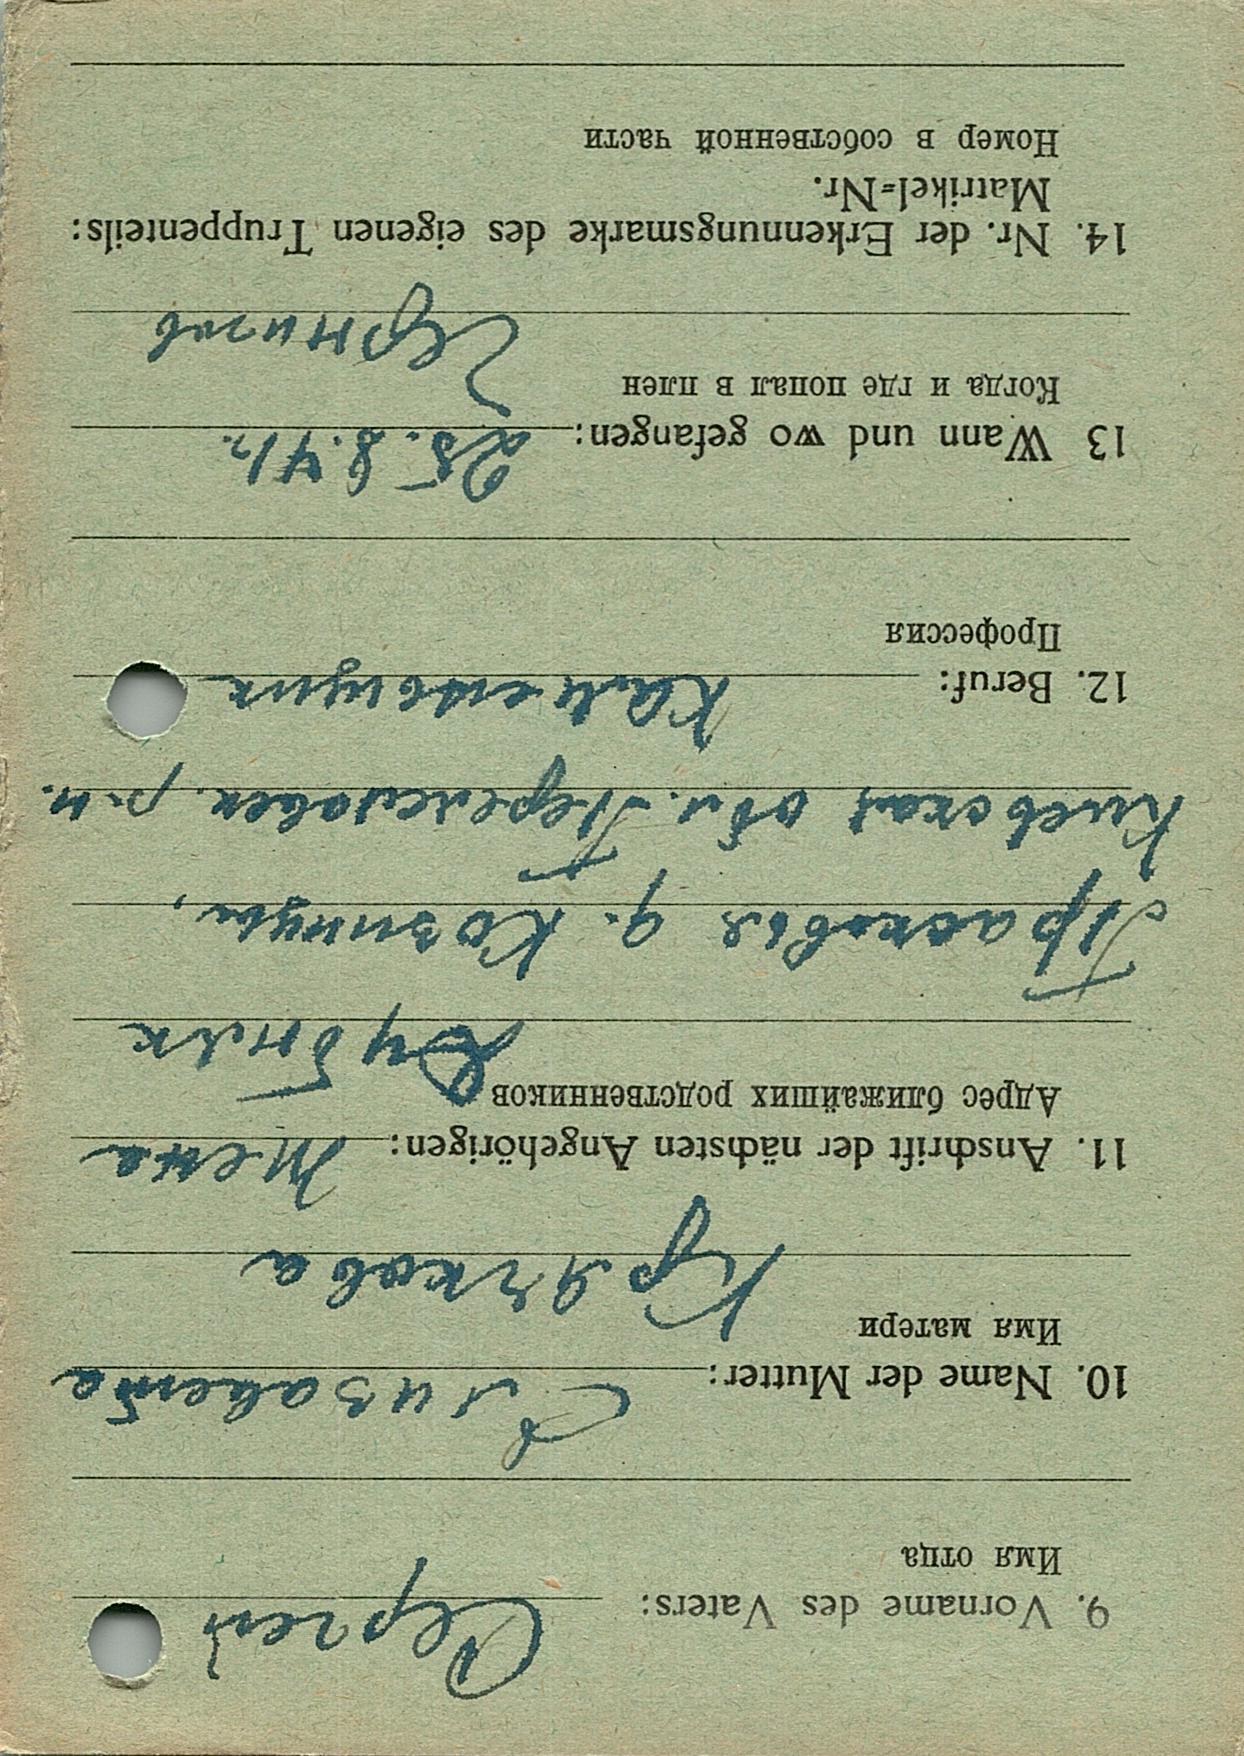 9. Vorname des Vaters: Сергей
Имя отца
10. Name der Mutter: Елизавета
Имя матери
Крячкова
11. Anschrift der nächsten Angehörigen: жена
Адрес ближайших родственников
Дубняк
Прасковья д. Козинцы,
Киевская обл. Переяславск. р-н.
12. Beruf:
Профессия
13 Wann und wo gefangen: 25. 8. 41 г.
Когда и где попал в плен
Чернигов
14. Nr. der Erkennungsmarke des eigenen Truppenteils:
Matrikel=Nr.
Номер в собственной части